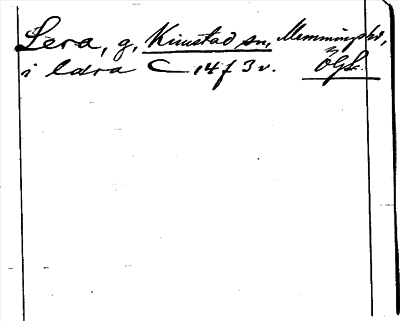 Lera, g, Kimstad sn, Memmings hd,
i Ldra C 14 f 3 v. ÖGL.